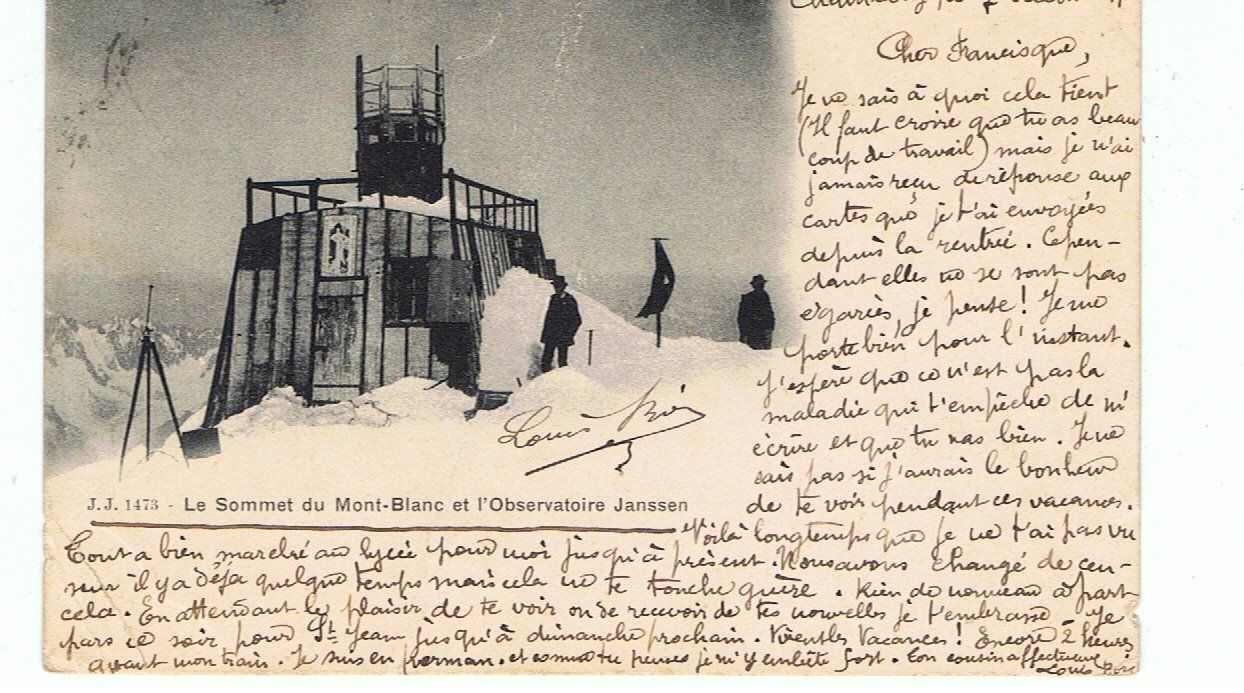 Cher Francisque,
Je ne sais à quoi cela tient
(Il faut croire que tu as beau
coup de travail) mais je n'ai
jamais reçu de réponse aux
cartes que je t'ai envoyées
depuis la rentrée. Cepen-
dant elles ne se sont pas
égarées, je pense! Je me
porte bien pour l'instant.
J'espère que ce n'est pas la
maladie qui t'empêche de m'
écrire et que tu vas bien. Je ne
sais pas si j'aurais le bonheur
de te voir pendant ces vacances.
Voilà longtemps que je ne t'ai pas vu
Louis
J.J. 1473 - Le Sommet du Mont-Blanc et l'Observatoire Janssen
Tout a bien marché au lycée pour moi jusqu'à présent. Nous avons changé de cen-
seur il y a déjà quelque temps mais cela ne te touche guère. Rien de nouveau à part
cela. En attendant le plaisir de te voir ou de recevoir de tes nouvelles je t'embrasse. Je
pars ce soir pour St Jean jusqu'à dimanche prochain. Vivent les Vacances! Encore 2 heures
avant mon train. Je suis en perman. et comme tu penses je m'y embête fort. Ton cousin affectueux
Louis